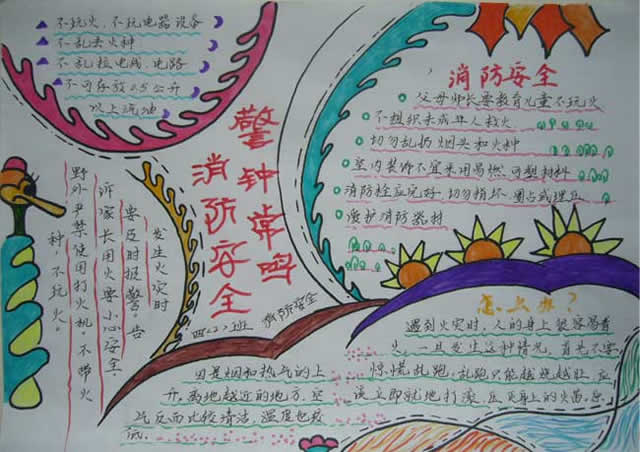 不玩火，不玩电器设备
不乱丢火种
不乱拉电线、电路
不可存放0.5公升
以上汽油
警钟常鸣
消防安全
消防安全
父母师长要教育儿童不玩火
不组织未成年人救火
切勿乱扔烟头和火种
室内装饰不宜采用易燃、可塑材料
消防栓应完好，切勿损坏、圈占或埋压
爱护消防器材
发生火灾时
要及时报警。告
诉家长用火要小心安全.
野外严禁使用打火机，不带火
种，不玩火。
四〈2〉班
消防安全
因是烟和热气的上
升，离地越近的地方，空
气反而比较清洁，温度也较
低。
怎么办？
遇到火灾时，人的身上最容易着
火，一旦发生这种情况，首先不要
惊慌乱跑，乱跑只能越烧越旺，应
该立即就地打滚，压灭身上的火苗，